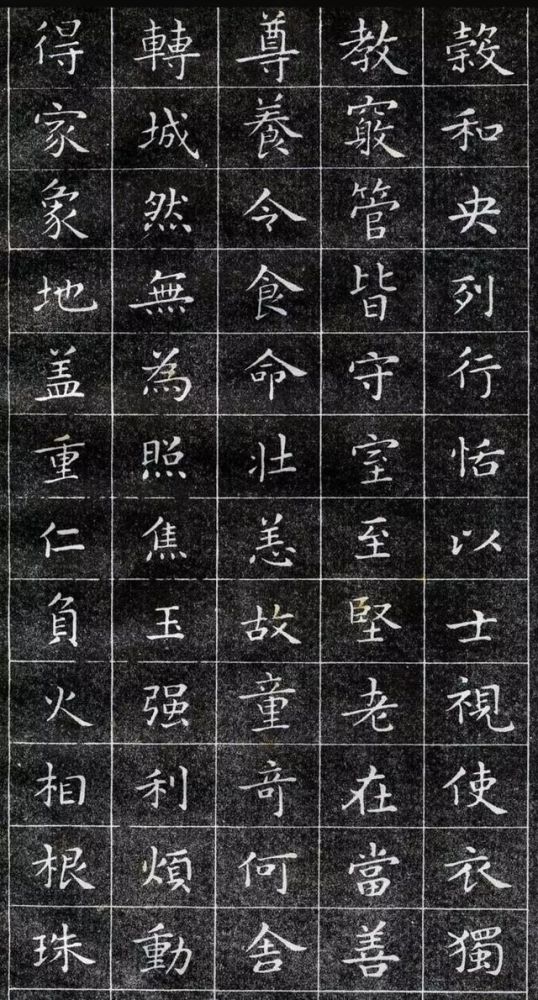 穀和央列行恬以士視使衣獨
教窮管皆守室至堅老在當善
尊養令食命壯恙故童奇何舍
轉城然無為照焦玉强利煩動
得家象地盖重仁負火相根珠